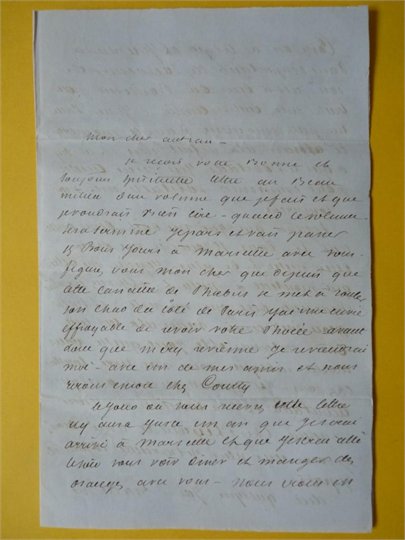 mon cher autran -
je recois votre bonne et
toujours spirituelle lettre au Beau
milieu d'un volume que je fais et que
je voudrais bien - quand le volume
sera terminé je pars et vais passer
15 Bons jours à marseille avec vous.
figurez vous mon cher que depuis que
cette canaille de Phœbus se met à rouler
son char du côté de Paris j'ai une envie
effroyable de revoir votre Phocée avant
donc que méry revienne je reviendrai
moi - avec un de mes amis et nous
irons encore chez Courty
le jour où vous recevrez cette lettre
il y aura juste un an que je serai
arrivé à marseille et que je serai allé
vous voir diner et manger des
oranges avec vous - nous irons en